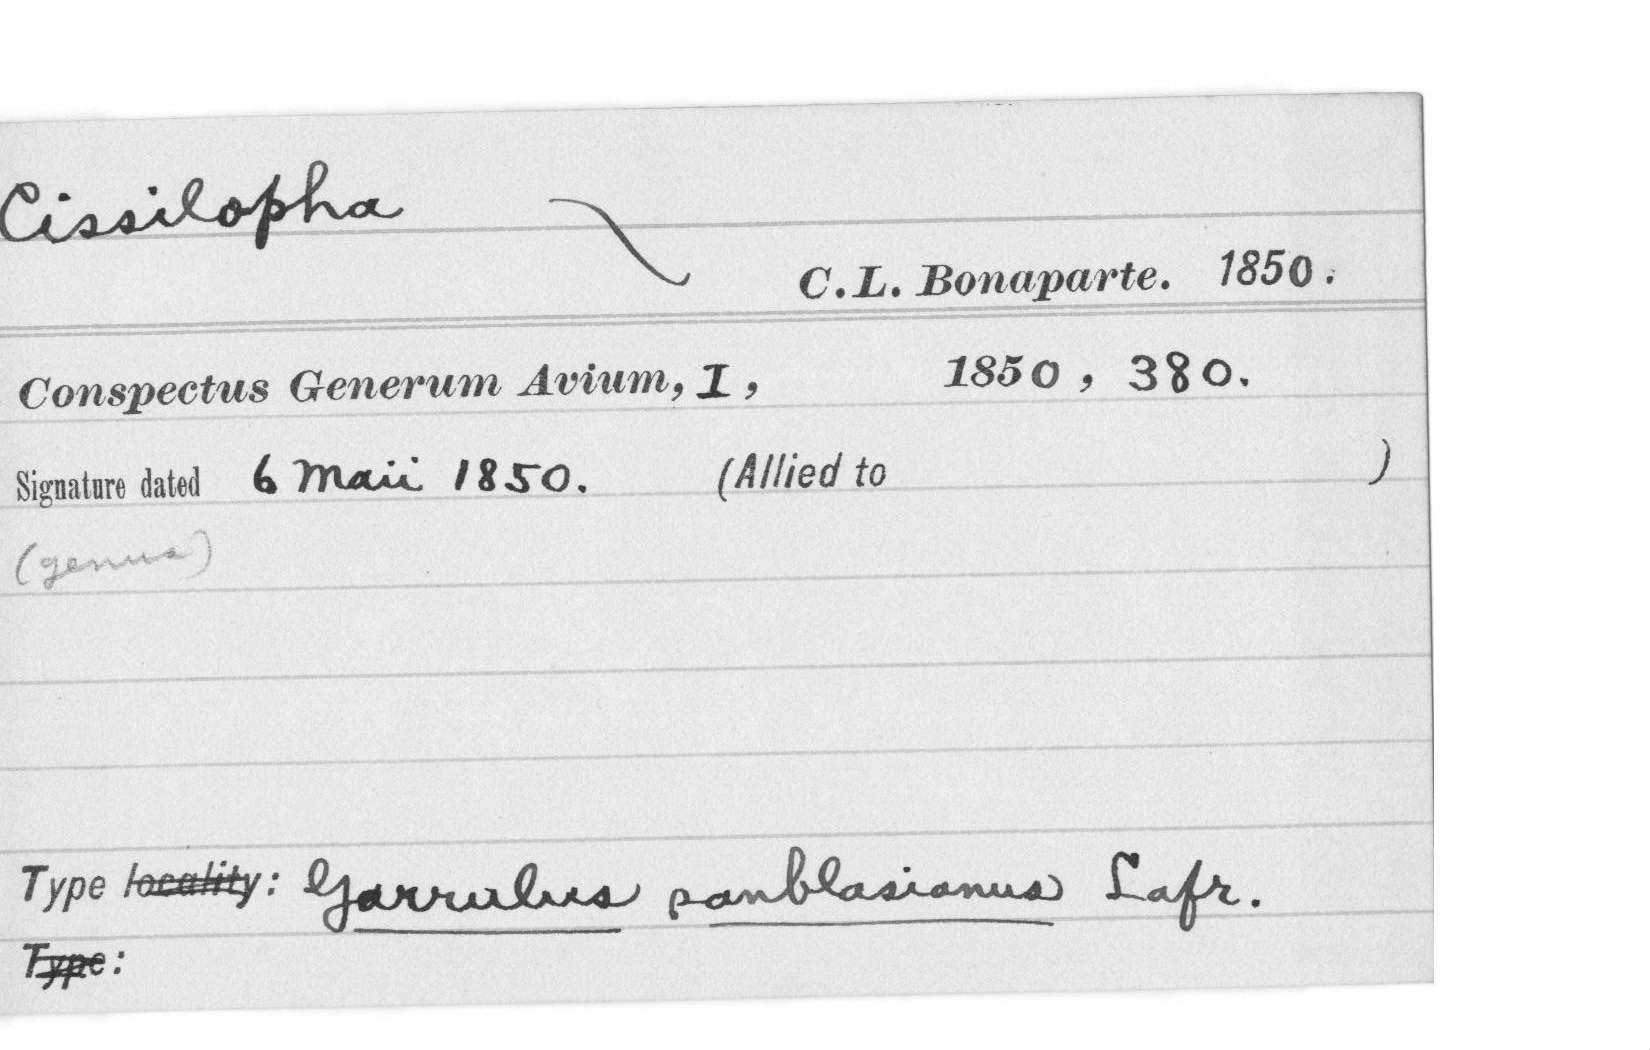 Cissilopha
C.L. Bonaparte. 1850.
Conspectus Generum Avium, I, 1850, 380.
Signature dated 6 Maii 1850. (Allied to )
(genus)
Type locality: Garrulus sanblasianus Lafr.
Type: